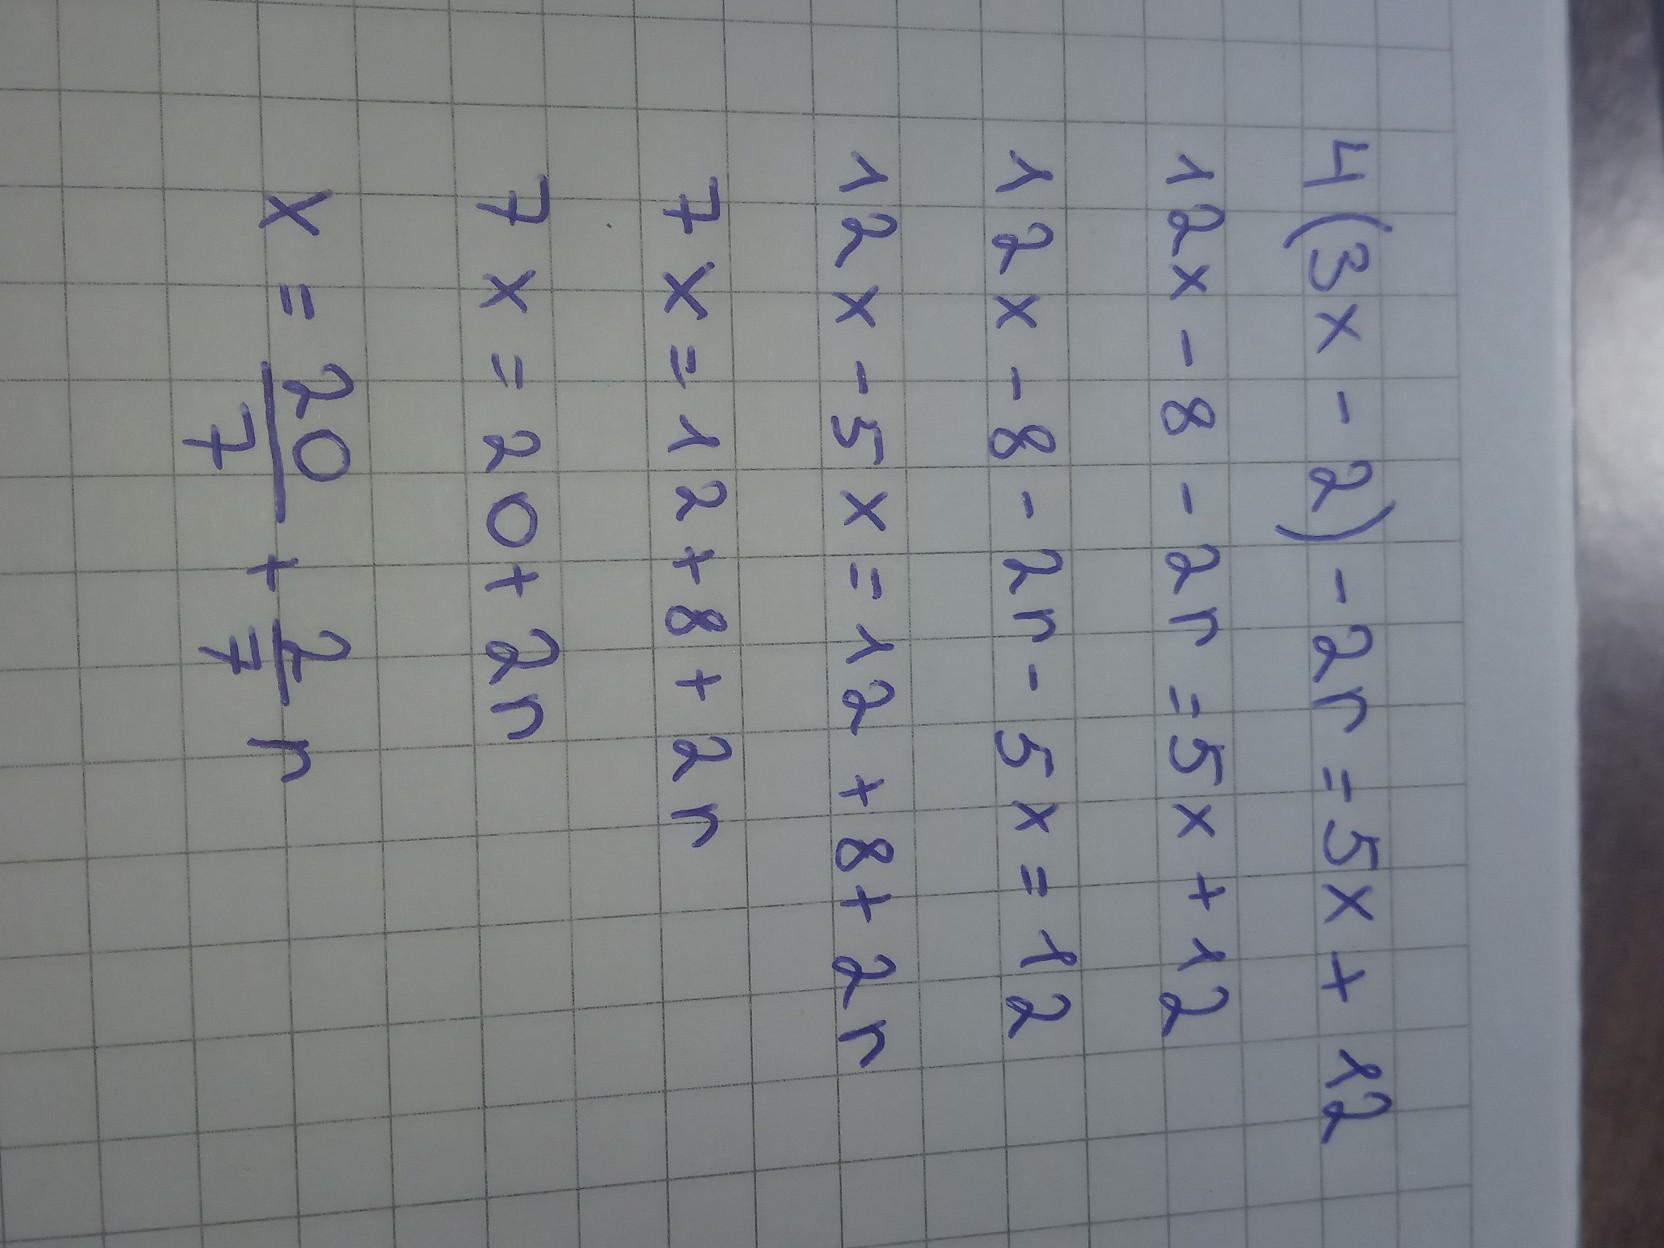 4(3x - 2) - 2r = 5x + 12
12x - 8 - 2r = 5x + 12
12x - 8 - 2r - 5x = 12
12x - 5x = 12 + 8 + 2r
7x = 12 + 8 + 2r
7x = 20 + 2r
x = 20/7 + 2/7 r